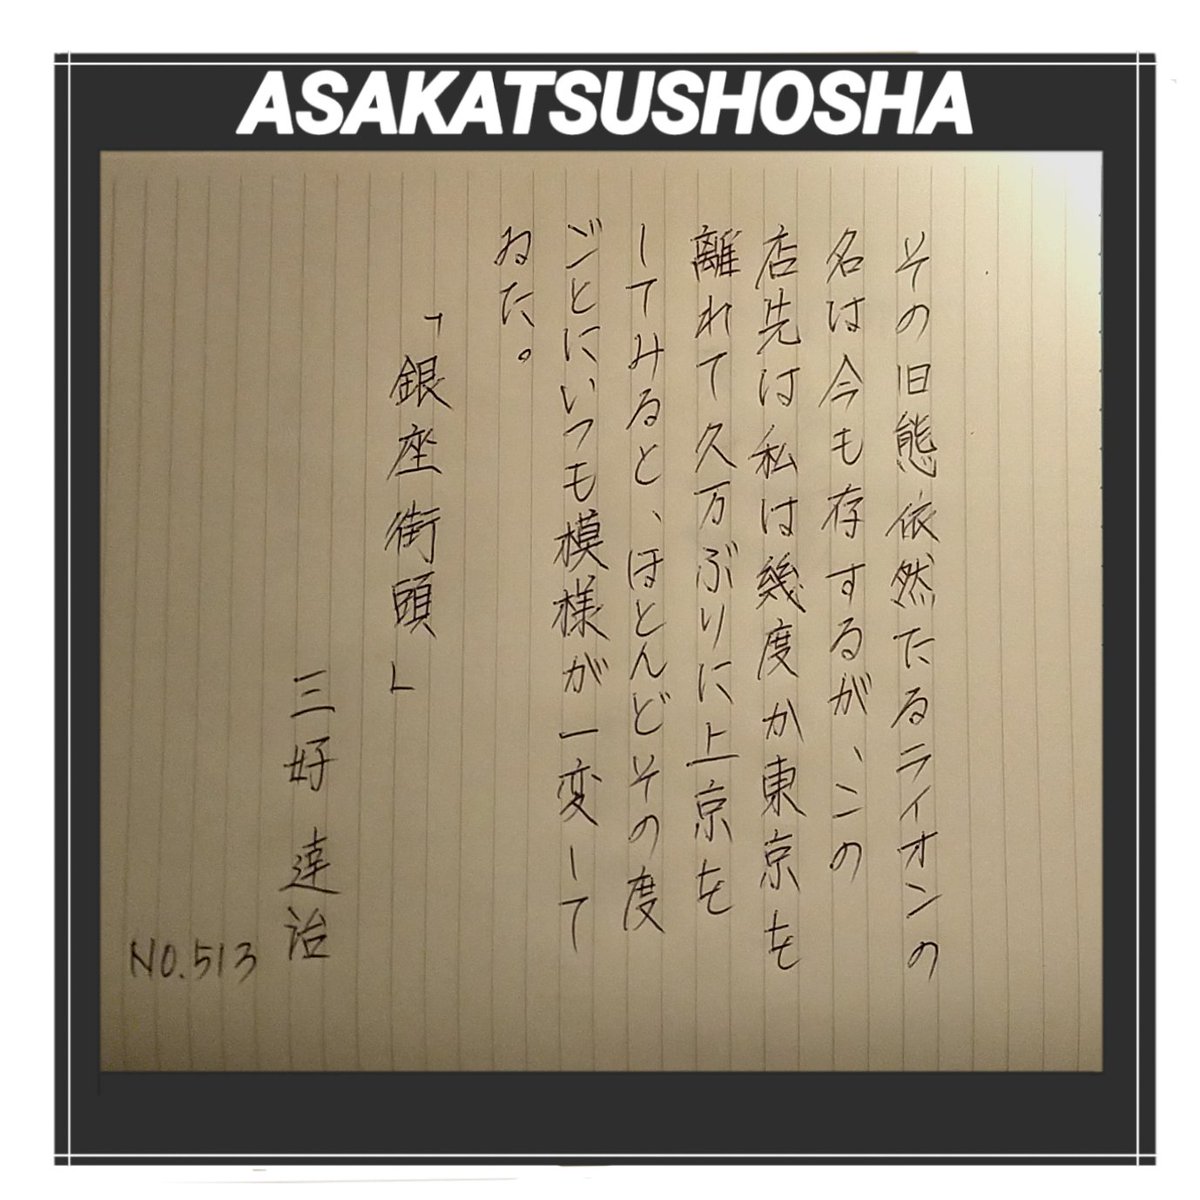 ASAKATSUSHOSHA
その旧態依然たるライオンの
名は今も存するが、この
店先は私は幾度か東京を
離れて久方ぶりに上京を
してみると、ほとんどその度
ごとにいつも模様が一変して
ゐた。
「銀座街頭」
三好達治
NO.513